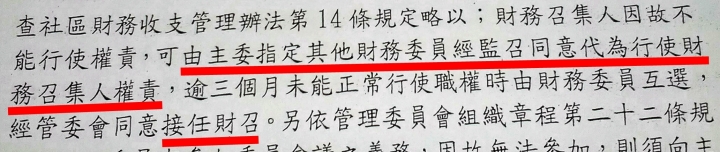 查社區財務收支管理辦法第14條規定略以；財務召集人因故不
能行使權責，可由主委指定其他財務委員經監召同意代為行使財
務召集人權責，逾三個月未能正常行使職權時由財務委員互選，
經管委會同意接任財召。另依管理委員會組織章程第二十二條規
委員會議之義務，因故無法參加，則須向主